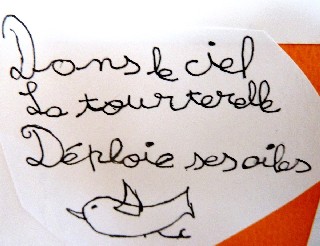 Dans le ciel
La tourterelle
Déploie ses ailes